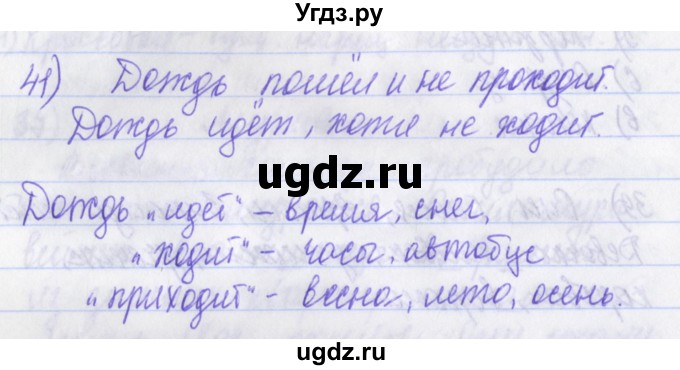 Угдз.ру
41) Дождь пошёл и не проходит.
Дождь идёт, хотя не ходит.
ugdz.ru
Дождь "идет" - время, снег,
"ходит" - часы, автобус
"приходит" - весна, лето, осень.
ugdz.ru